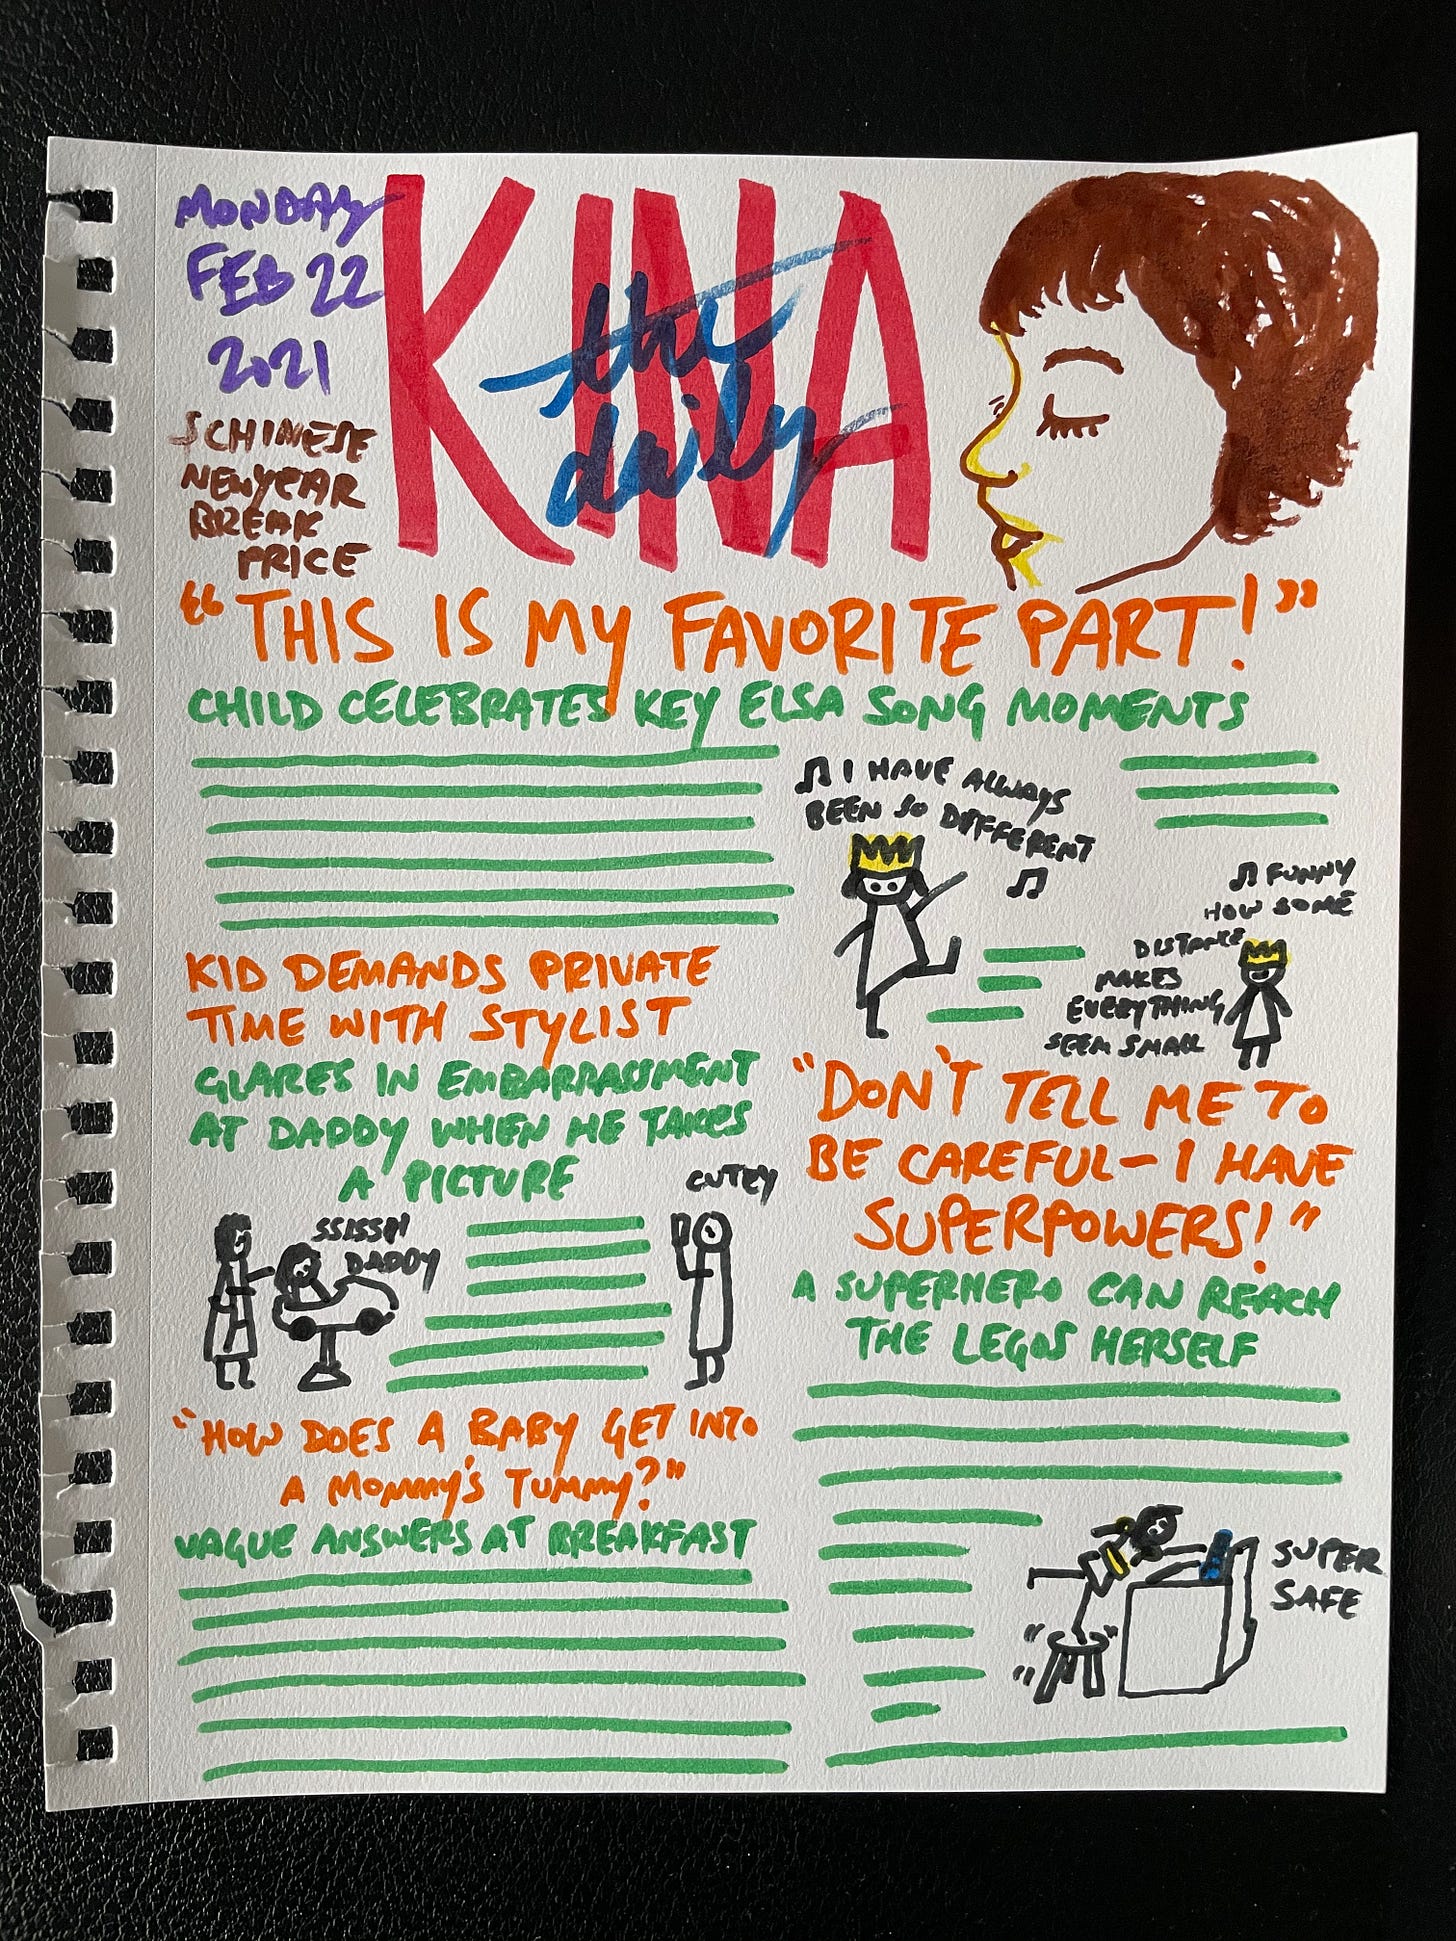 MONDAY
FEB 22
2021
$CHINESE
NEW YEAR
BREAK
PRICE
KINA
the
daily
"THIS IS MY FAVORITE PART!"
CHILD CELEBRATES KEY ELSA SONG MOMENTS
♫ I HAVE ALWAYS
BEEN SO DIFFERENT
♫
♫ FUNNY
HOW SOME
DISTANCE
MAKES
EVERYTHING
SEEM SMALL
KID DEMANDS PRIVATE
TIME WITH STYLIST
GLARES IN EMBARRASSMENT
AT DADDY WHEN HE TAKES
A PICTURE
DADDY
CUTEY
"HOW DOES A BABY GET INTO
A MOMMY'S TUMMY?"
VAGUE ANSWERS AT BREAKFAST
"DON'T TELL ME TO
BE CAREFUL - I HAVE
SUPERPOWERS!"
A SUPERHERO CAN REACH
THE LEGOS HERSELF
SUPER
SAFE